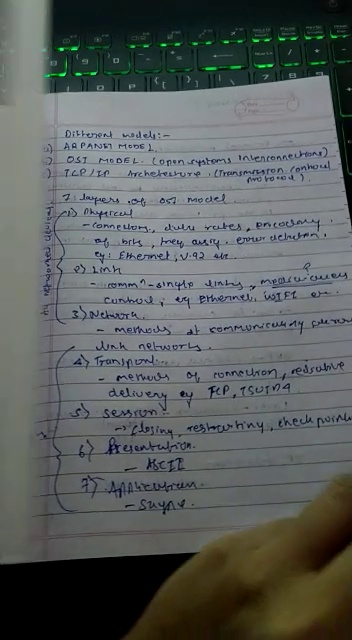 Different models:-
ARPANET MODEL
OSI MODEL. (open systems Interconnections)
TCP/IP Architecture. (Transmission control
protocol).
7 layers of OSI model
1) Physical
- connectors, data rates, encoding
of bits, error detection.
eg: Ethernet, V.92 etc
2) Link
- commn - single links, media access
control, eg Ethernet, WIFI etc.
3) Network
- methods of communicating
link networks.
4) Transport
- methods of connection,
delivery eg TCP,
5) Session.
-> closing, restarting, checkpoint
6) Presentation.
- ASCII
7) Application.
- Skype.